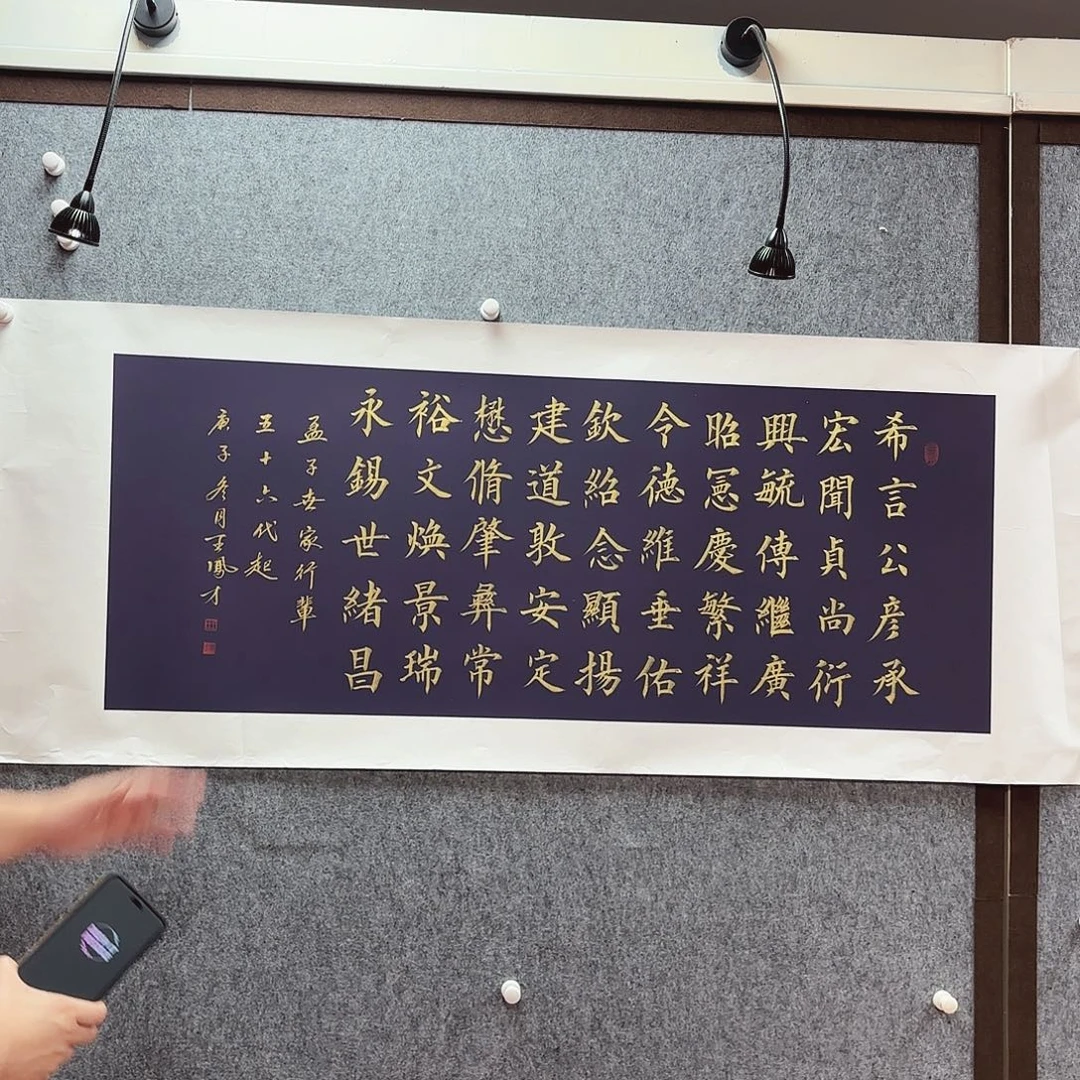 希言公彦承
宏聞貞尚衍
興毓傳繼廣
昭憲慶繁祥
令德維垂佑
欽紹念顯揚
建道敦安定
懋脩肇彝常
裕文煥景瑞
永錫世緒昌
孟子世家行輩
五十六代起
庚子冬月王鳳才